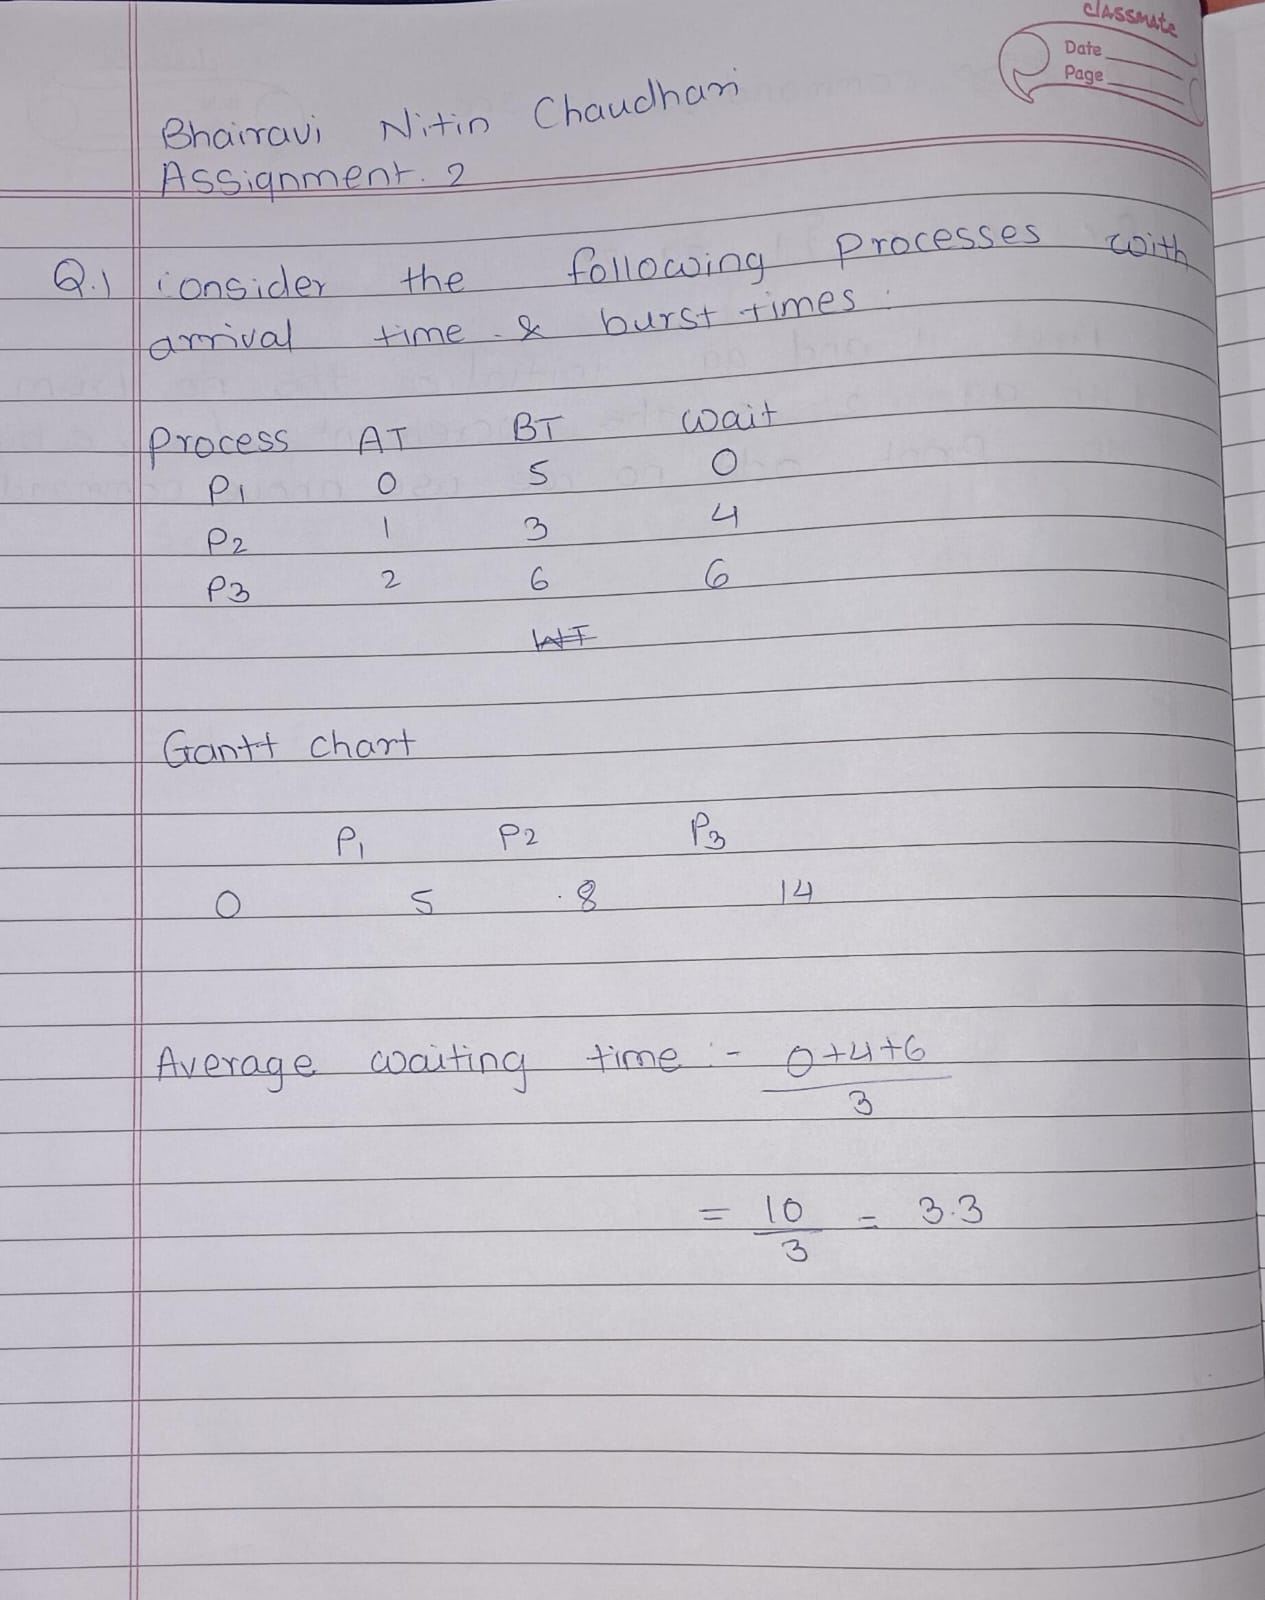 classmate
Date
Page
Bhairavi Nitin Chaudhari
Assignment. 2
Q.1 consider the following processes with
arrival time & burst times.
Process AT BT wait
P1 0 5 0
P2 1 3 4
P3 2 6 6
WT
Gantt chart
P1 P2 P3
0 5 8 14
Average waiting time :- 0+4+6
3
= 10 = 3.3
3